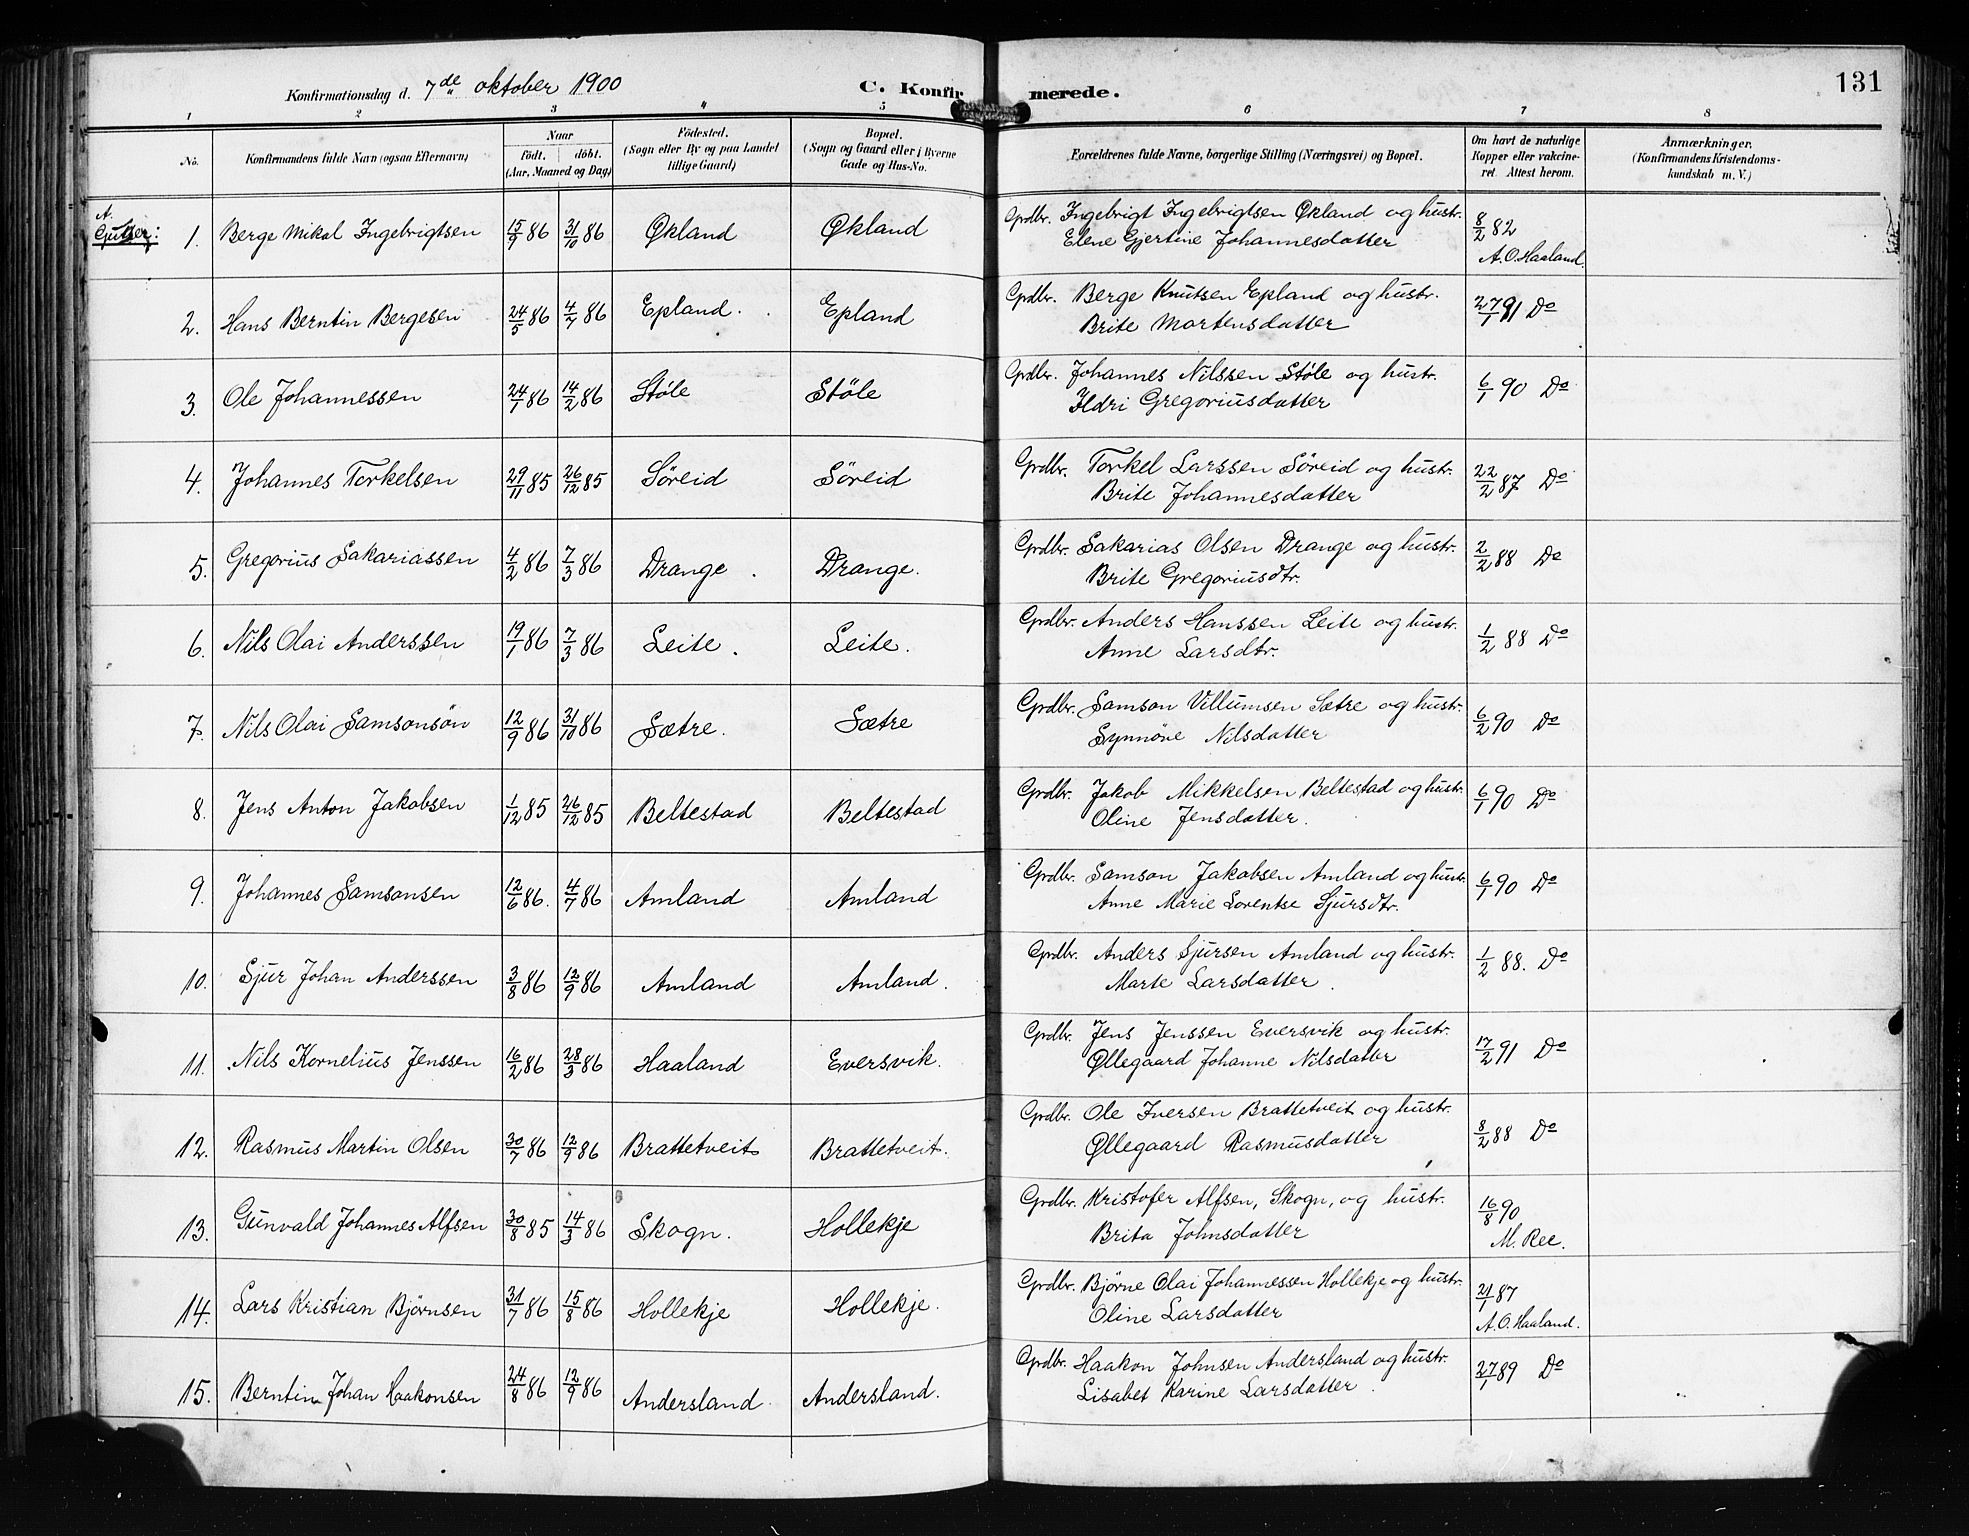 Konfirmationsdag d. 7de oktober 1900
C. Konfirmerede.
131
1 2 3 4 5 6 7 8
No. Konfirmandens fulde Navn (ogsaa Efternavn) Naar født. døbt. (Aar, Maaned og Dag) Födested. (Sogn eller By og paa Landet tillige Gaard) Bopæl. (Sogn og Gaard eller i Byerne Gade og Hus-No. Forældrenes fulde Navne, borgerlige Stilling (Næringsvei) og Bopæl. Om havt de naturlige Kopper eller vakcineret. Attest herom. Anmærkninger. (Konfirmandens Kristendomskundskab m. V.)
A. Gutter:
1. Berge Mikal Ingebrigtsen 15/9 86 31/10 86 Økland Økland Grdbr. Ingebrigt Ingebrigtsen Økland og hustr. 8/2 82
Elene Gjertine Johannesdatter A. O. Haaland.
2. Hans Berntin Bergesen 24/5 86 4/7 86 Epland. Epland Grdbr. Berge Knutsen Epland og hustr. 27/1 91 Do
Brite Mortensdatter
3. Ole Johannessen 24/1 86 14/2 86 Støle Støle Grdbr. Johannes Nilssen Støle og hustr. 6/1 90 Do
Ildri Gregoriusdatter
4. Johannes Torkelsen 29/11 85 26/12 85 Söreid Söreid Grdbr. Torkel Larssen Söreid og hustr. 22/2 87 Do
Brite Johannesdatter
5. Gregorius Sakariassen 4/2 86 7/3 86 Drange. Drange. Grdbr. Sakarias Olsen Drange og hustr. 2/2 88 Do
Brite Gregoriusdtr.
6. Nils Olai Anderssen 19/1 86 7/3 86 Leite. Leite. Grdbr. Anders Hanssen Leite og hustr. 1/2 88 Do
Anne Larsdtr.
7. Nils Olai Samsonsön 12/9 86 31/10 86 Sætre. Sætre Grdbr. Samson Villumsen Sætre og hustr. 6/2 90 Do
Synnöve Nilsdatter
8. Jens Anton Jakobsen 1/12 85 26/12 85 Beltestad Beltestad Grdbr. Jakob Mikkelsen Beltestad og hustr. 6/1 90 Do
Oline Jensdatter.
9. Johannes Samsonsen 12/6 86. 4/7 86 Amland Amland Grdbr. Samson Jakobsen Amland og hustr. 6/1 90 Do
Anne Marie Lorentse Sjursdtr.
10. Sjur Johan Anderssen 3/8 86 12/9 86 Amland Amland. Grdbr. Anders Sjursen Amland og hustr. 1/2 88. Do
Marte Larsdatter.
11. Nils Kornelius Jenssen 16/2 86 28/3 86 Haaland Eversvik. Grdbr. Jens Jenssen Eversvik og hustr. 17/2 91 Do
Øllegaard Johanne Nilsdatter
12. Rasmus Martin Olsen 30/7 86 12/9 86 Brattetveit Brattetveit. Grdbr. Ole Iversen Brattetveit og hustr. 8/2 88 Do
Øllegaard Rasmusdatter
13. Gunvald Johannes Alfsen 30/8 85 14/3 86 Skogn. Hollekje Grdbr. Kristofer Alfsen, Skogn, og hustr. 16/8 90
Brita Johnsdatter M. Ree.
14. Lars Kristian Björnsen 31/7 86 15/8 86 Hollekje Hollekje. Grdbr. Bjørne Olai Johannessen Hollekje og hustr. 21/1 87
Oline Larsdatter A. O. Haaland.
15. Berntin Johan Haakonsen 24/8 86 12/9 86 Andersland. Andersland. Grdbr. Haakon Johnsen Andersland og hustr. 27/1 89 Do
Lisabet Karine Larsdatter.